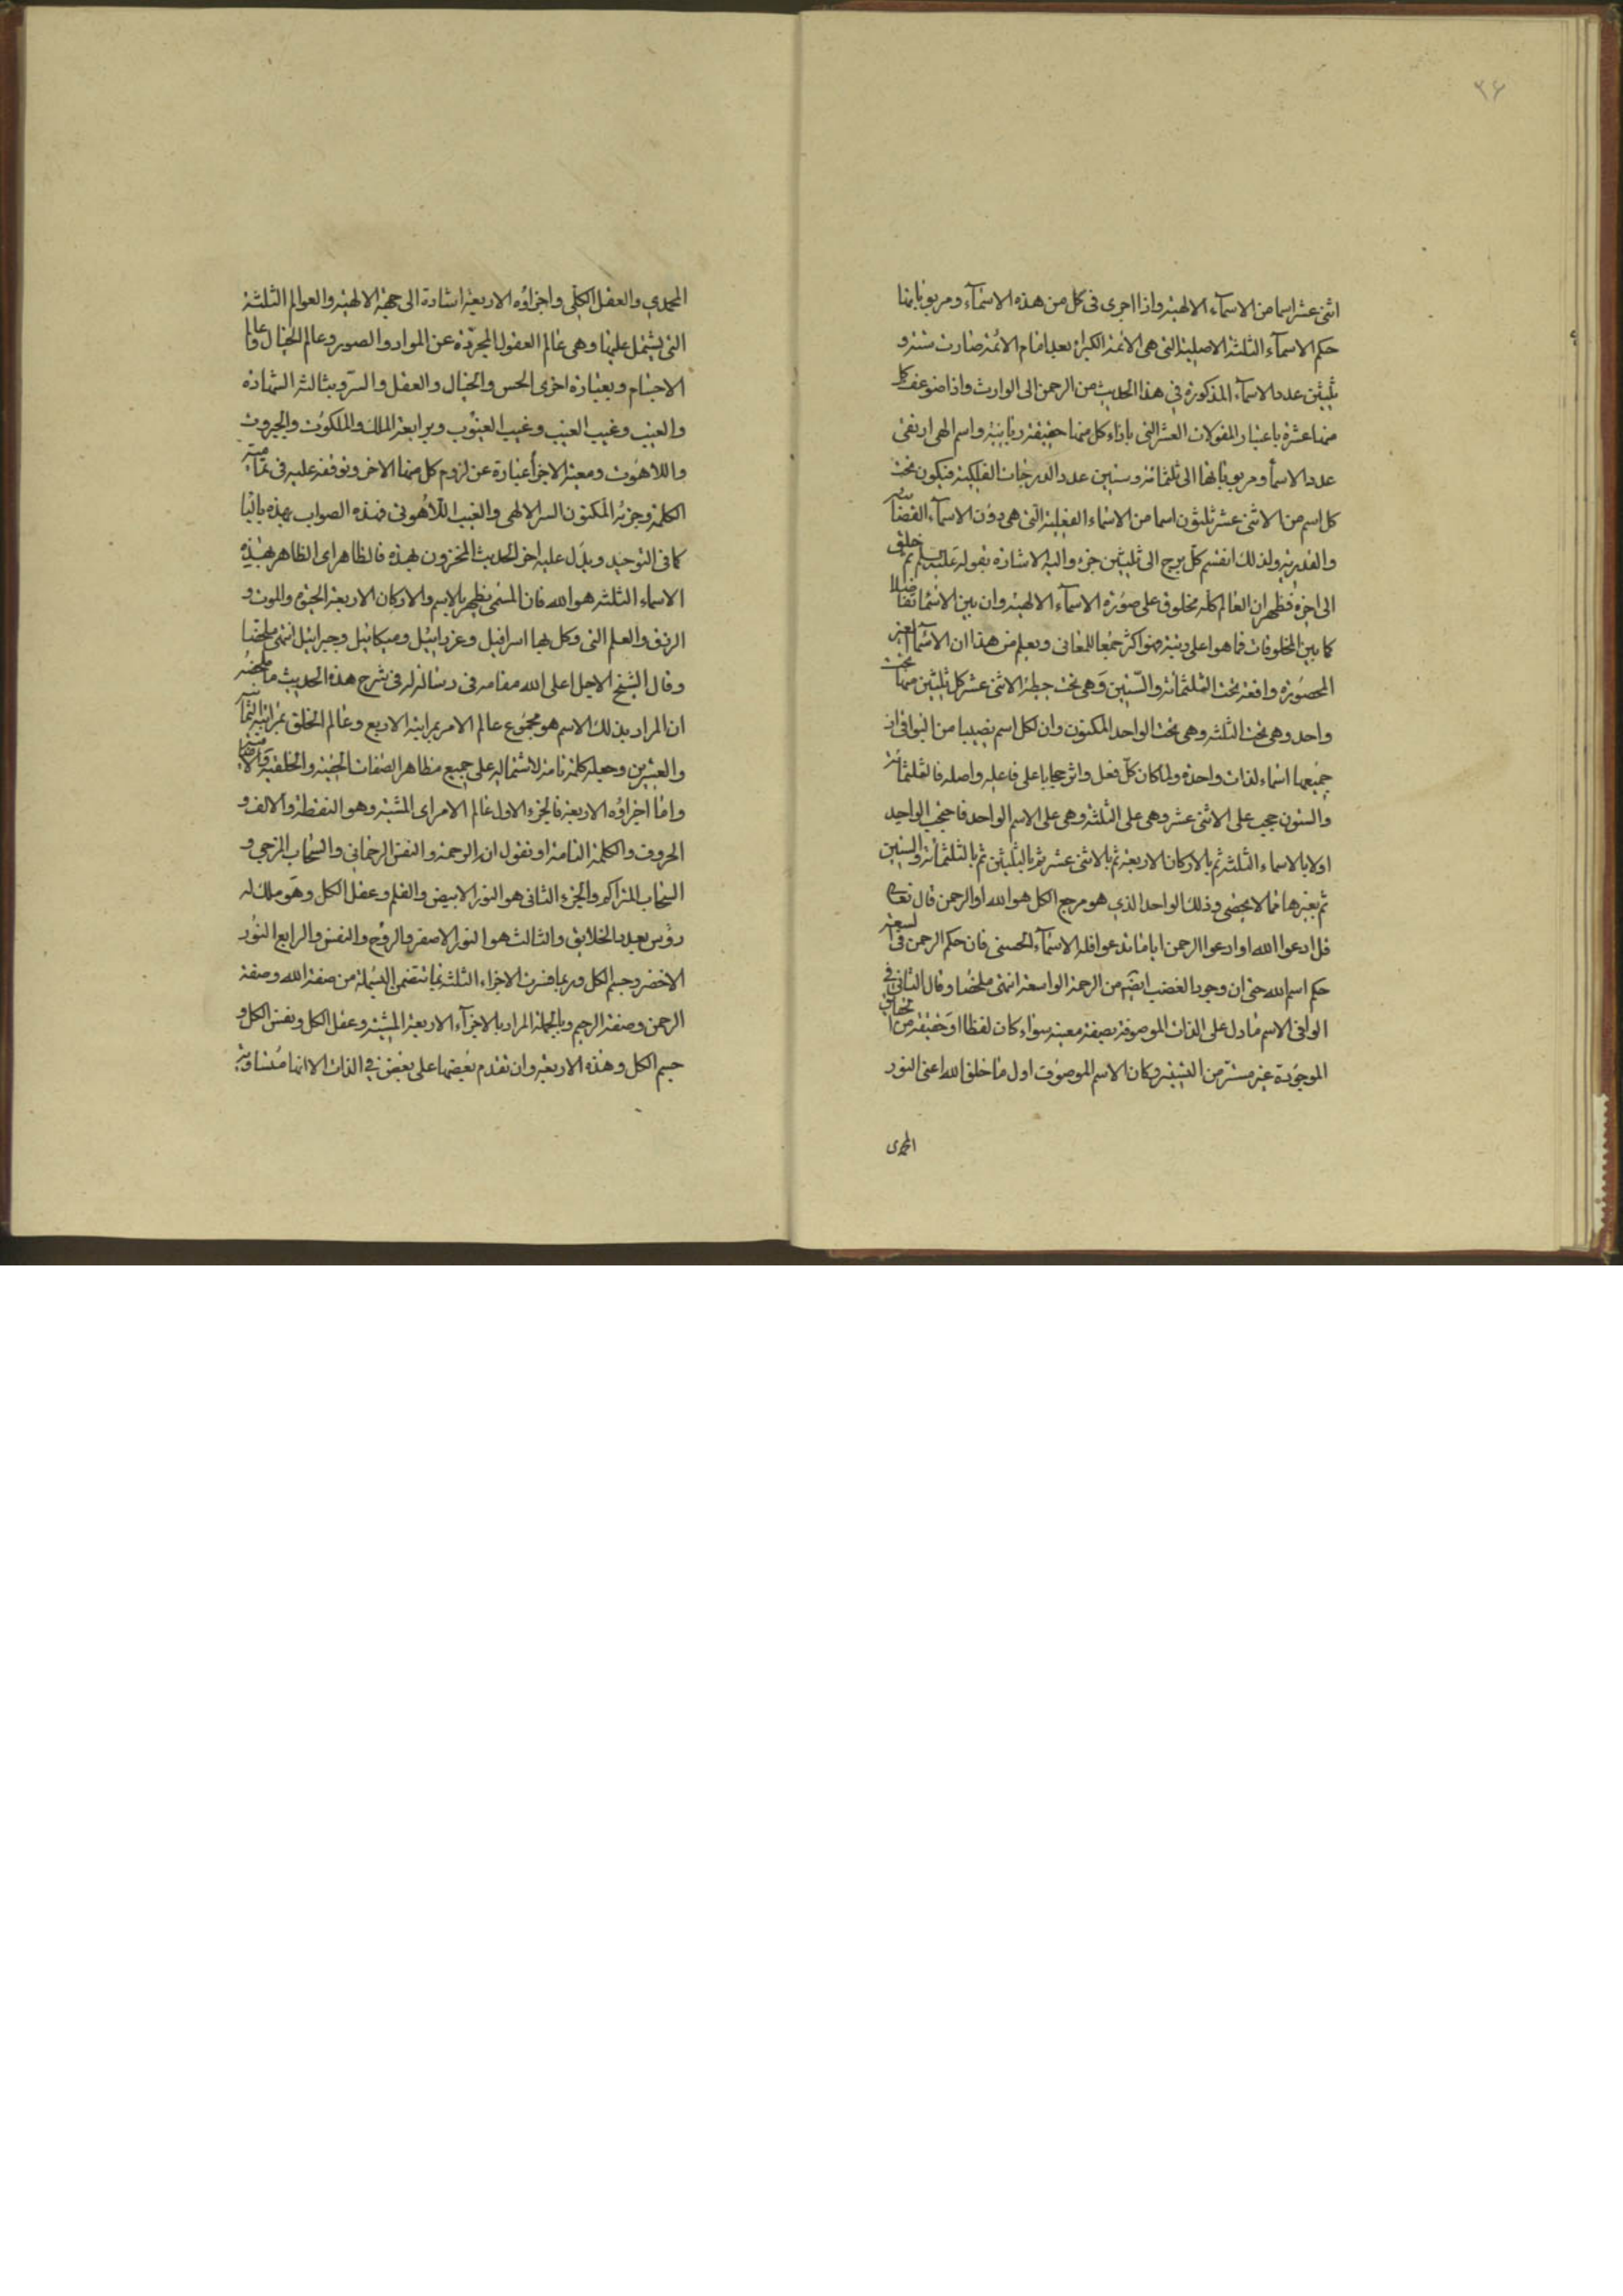 ٢۶
اثنى عشر اسما من الاسمآء الالهية واذا اجرى فى كل من هذه الاسمآء ومربوباتها
حكم الاسمآء الثلثة الاصلية التى هى الائمة الكبراء بعد امام الائمة صارت ستة و
ثلثين عدد الاسمآء المذكورة فى هذا الحديث من الرحمن الى الوارث واذا ضوعف كل
منها عشرة باعتبار المقولات العشر التى بازاء كل منها حقيقة ربانية واسم الهى ارتقى
عدد الاسمآ ومربوباتها الى ثلثمائة وستين عدد الدرجات الفلكية فيكون تحت
كل اسم من الاثنى عشر ثلثون اسما من الاسماء الفعلية التى هى دون الاسمآء القضائية
والقدرية ولذلك انقسم كل برج الى ثلثين جزء واليه الاشارة بقوله عليه السلم ثم خلق
الى اخره فظهر ان العالم كله مخلوق على صورة الاسمآء الالهية وان بين الاسماء تفاضلا
كما بين المخلوقات فما هو اعلى رتبة فهو اكثر جمعا للمعانى ويعلم من هذا ان الاسمآء الغير
المحصورة واقعة تحت الثلثمائة والستين وهى تحت حيطة الاثنى عشر كل ثلثين منها تحت
واحد وهى تحت الثلثة وهى تحت الواحد المكنون وان لكل اسم نصيبا من البواقى اذ
جميعها اسماء لذات واحدة ولما كان كل فعل واثر حجابا على فاعله واصله فالثلثمائة
والستون حجب على الاثنى عشر وهى على الثلثة وهى على الاسم الواحد فاحتجب الواحد
اولا بالاسماء الثلثة ثم بالاركان الاربعة ثم بالاثنى عشر ثم بالثلثين ثم بالثلثمائة والستين
ثم بغيرها مما لا يحصى وذلك الواحد الذى هو مرجع الكل هو الله او الرحمن قال تعالى
قل ادعوا الله او ادعوا الرحمن اياما تدعوا فله الاسمآء الحسنى فان حكم الرحمن فى السعة
حكم اسم الله حتى ان وجود الغضب ايضا من الرحمة الواسعة انتهى ملخصا وقال الثانى فى
الوافى الاسم ما دل على الذات الموصوفة بصفة معينة سواء كان لفظا او حقيقة من الحقائق
الموجودة غير مستتر من الشيفه وكان الاسم الموصوف اول ما خلق الله اعنى النور
المحمدى
المحمدي والعقل الكلى واجزاؤه الاربعة اشارة الى جهته الالهية والعوالم الثلثة
التى يشتمل عليها وهى عالم العقول المجردة عن المواد والصور وعالم الخيال وعالم
الاجسام وبعبارة اخرى الحس والخيال والعقل والسر وبثالثة الشهادة
والغيب وغيب الغيب وغيب الغيوب وبرابعة الملك والملكوت والجبروت
واللاهوت ومعية الاجزآ عبارة عن لزوم كل منها الاخر وتوقفه عليه فى تمامية
الكلمة وجزئه المكنون السر الالهى والغيب اللاهوتى فهذه الصواب بهذه بالبا
كما فى التوحيد ويدل عليه اخر الحديث المخزون بهذه فالظاهر اى الظاهر بهذه
الاسماء الثلثة هو الله فان المسمى يظهر بالاسم والاركان الاربعة الحيوة والموت و
الرزق والعلم التى وكل بها اسرافيل وعزرائيل وميكائيل وجبرائيل انتهى ملخصا
وقال الشيخ الاجل اعلى الله مقامه فى رسالة له فى شرح هذه الحديث ما ملخصه
ان المراد بذلك الاسم هو مجموع عالم الامر بمراتبه الاربع وعالم الخلق بمراتبه الثمانية
والعشرين وجعله كلمة تامة لاشتماله على جميع مظاهر الصفات الحقية والخلقية
واما اجزاؤه الاربعة فالجزء الاول عالم الامر اى المشية وهو النقطة والالف و
الحروف والكلمة التامة او نقول ان الرحمة والنفس الرحمانى والسحاب المزجى و
السحاب المتراكم والجزء الثانى هو النور الابيض والقلم وعقل الكل وهو ملك له
رؤس بعدد الخلايق والثالث هو النور الاصفر والروح والنفس والرابع النور
الاخضر وجسم الكل وربما فسرت الاجزاء الثلثة بما تتضمن البسملة من صفة الله وصفة
الرحمن وصفة الرحيم وبالجملة المراد بالاجزآء الاربعة المشية وعقل الكل ونفس الكل و
جسم الكل وهذه الاربعة وان تقدم بعضها على بعض فى الذات الا انها متساوية